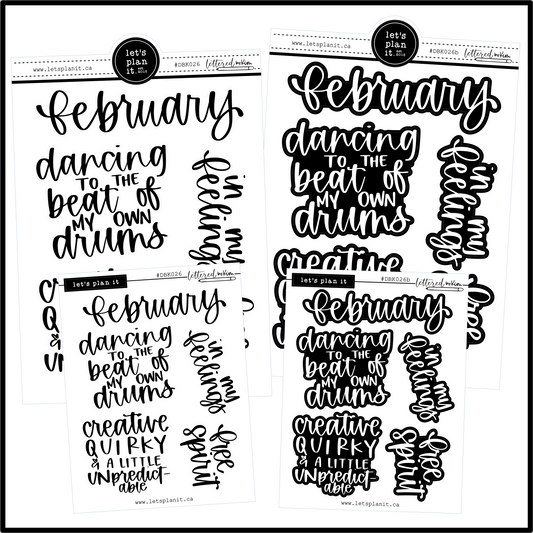 let's
plan
it.
EST.
2015
www.letsplanit.ca
#DBK026
lettered by kim
february
dancing
TO THE
beat of
MY OWN
drums
in my
feelings
let's
plan
it.
EST.
2015
www.letsplanit.ca
#DBK026b
february
dancing
TO THE
beat of
MY OWN
drums
in my
feelings
creative
free
let's plan it
#DBK026
february
dancing
TO THE
beat of
MY OWN
drums
in my
feelings
creative
QUIRKY
& A LITTLE
UNpredict-
able
free
spirit
www.letsplanit.ca
let's plan it
#DBK026b
february
dancing
TO THE
beat of
MY OWN
drums
in my
feelings
creative
QUIRKY
& A LITTLE
UNpredict-
able
free
spirit
www.letsplanit.ca